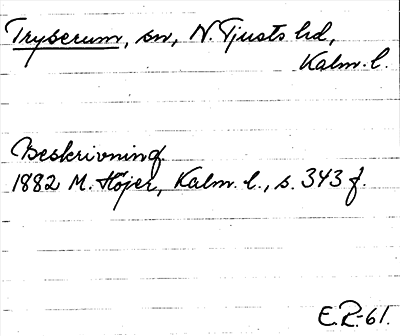 Tryserum, sn, N. Tjusts hd,
Kalm. l.
Beskrivning.
1882 M. Höjer, Kalm. l., s. 343 f.
E.R.-61.